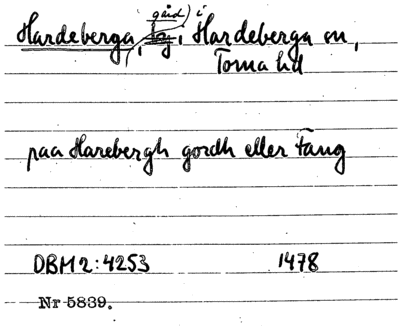 gård) i
Hardeberga, i Hardeberga sn,
Torna hd
paa Harebergh gordh eller Tang
DBM 2:4253 1478
Nr 5839.